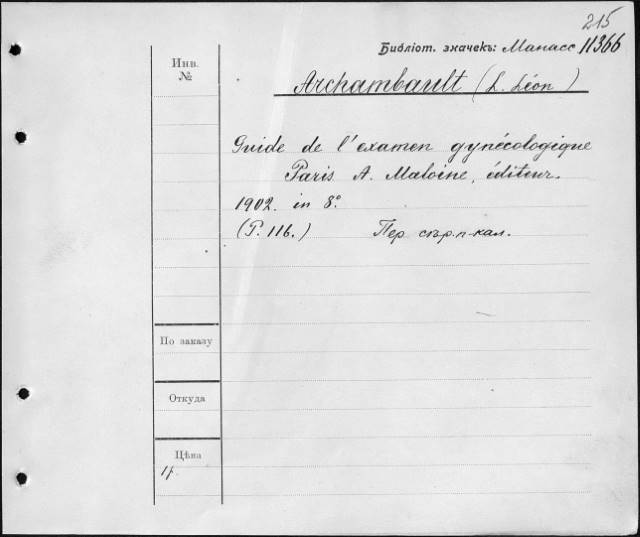 215
Библіот. значекъ: Манасс 11366
Инв.
№
Archambault (L. Léon)
Guide de l'examen gynécologique
Paris A. Maloine, éditeur.
1902. in 8°.
(P. 116.) Пер сѣр.п-кал.
По заказу
Откуда
Цѣна
1р.